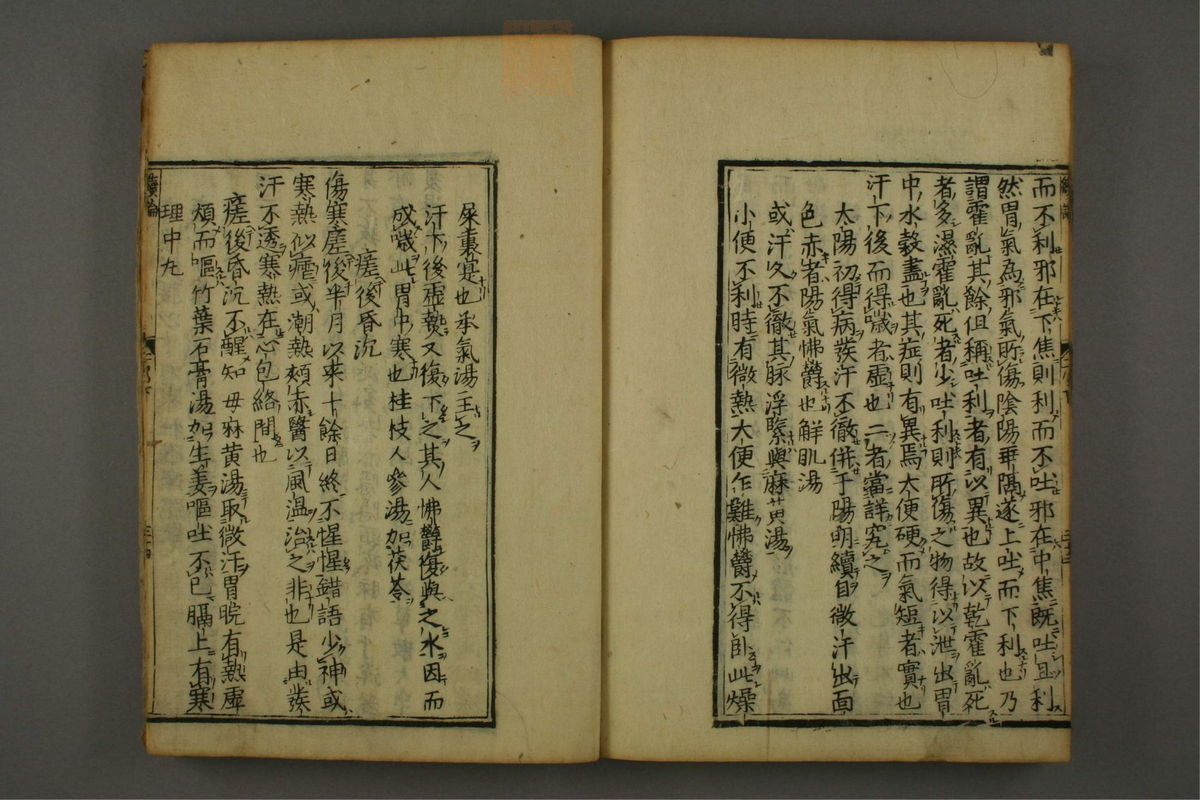 而不利邪在下焦則利而不吐邪在中焦既吐且利
然胃氣為邪氣所傷陰陽乖隔遂上吐而下利也乃
謂霍亂其餘但稱吐利者有以異也故以乾霍亂死
者多濕霍亂死者少吐利則所傷之物得以泄出胃
中水穀盡也其症則有異焉大便硬而氣短者實也
汗下後而得噦者虛也二者當詳究之
太陽初得病發汗不徹併于陽明續自微汗出面
色赤者陽氣怫鬱也解肌湯
或汗久不徹其脉浮緊與麻黃湯
小便不利時有微熱大便乍難怫鬱不得卧此燥
屎裏寔也承氣湯主之
汗下後虛熱又復下之其人怫鬱復與之水因而
成噦此胃中寒也桂枝人參湯加茯苓
瘥後昏沉
傷寒瘥後半月以來十餘日終不惺惺錯語少神或
寒熱似瘧或潮熱頰赤醫以風温治之非也是由發
汗不透寒熱在心包絡間也
瘥後昏沉不醒知母麻黄湯取微汗胃脘有熱虛
煩而嘔竹葉石膏湯加生姜嘔吐不已膈上有寒
理中丸
續論
三十四